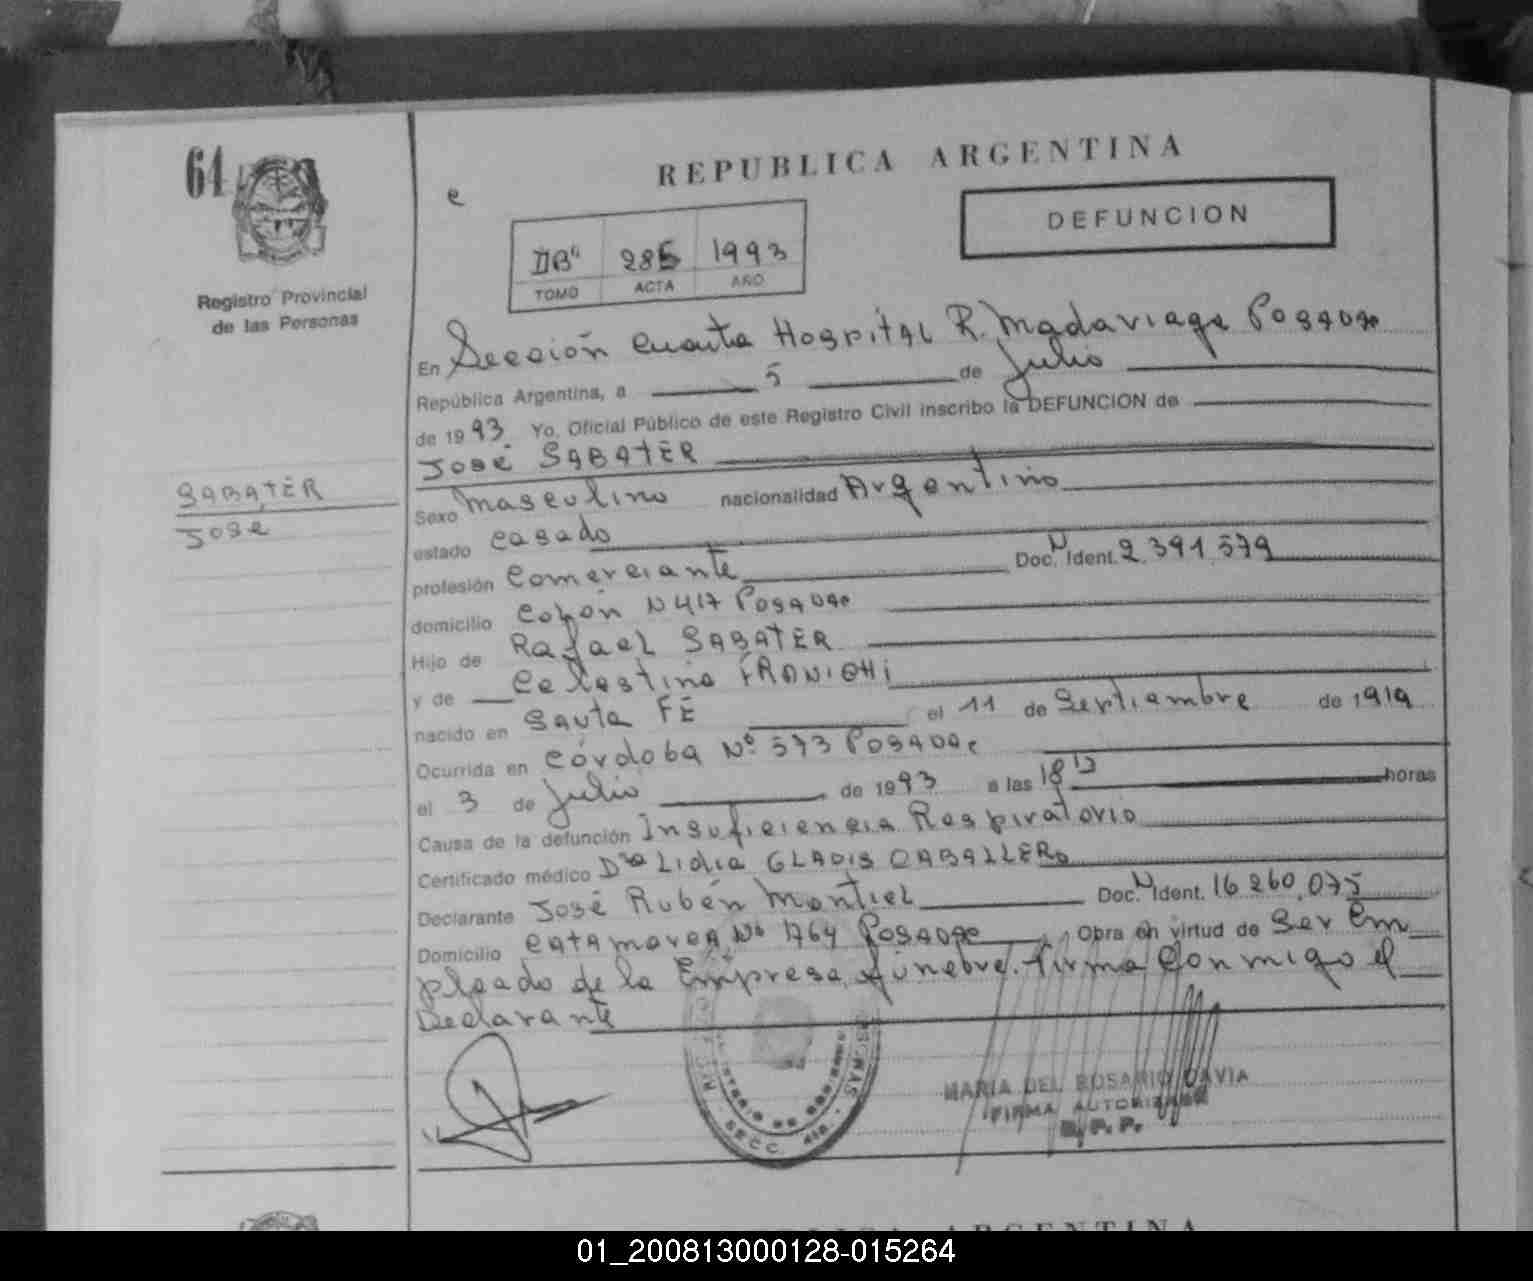 61
REPUBLICA ARGENTINA
e
DEFUNCION
IIBº 285 1993
TOMO ACTA AÑO
Registro Provincial
de las Personas
En Sección Cuarta Hospital R. Madariaga Posadas
República Argentina, a 5 de Julio
de 1993. Yo, Oficial Público de este Registro Civil inscribo la DEFUNCION de
José SABATER
SABATER
José
Sexo masculino nacionalidad Argentino
estado casado
profesión Comerciante Doc. N Ident. 2.391.579
domicilio Colón N 417 Posadas
Hijo de Rafael SABATER
y de Celestina
nacido en Santa FE el 11 de Septiembre de 1919
Ocurrida en Córdoba Nº 573 Posadas
el 3 de Julio de 1993 a las 18 horas
Causa de la defunción Insuficiencia Respiratorio
Certificado médico Dra Lidia GLADIS CABALLERO
Declarante José Rubén Montiel Doc. N Ident. 16.260.075
Domicilio Catamarca Nº 1764 Posadas Obra en virtud de Ser Em
pleado de la Empresa fúnebre. Firma Conmigo el
Declarante
MARIA DEL ROSARIO DAVIA
FIRMA AUTORIZADA
R. P. P.
REPUBLICA ARGENTINA
01_200813000128-015264